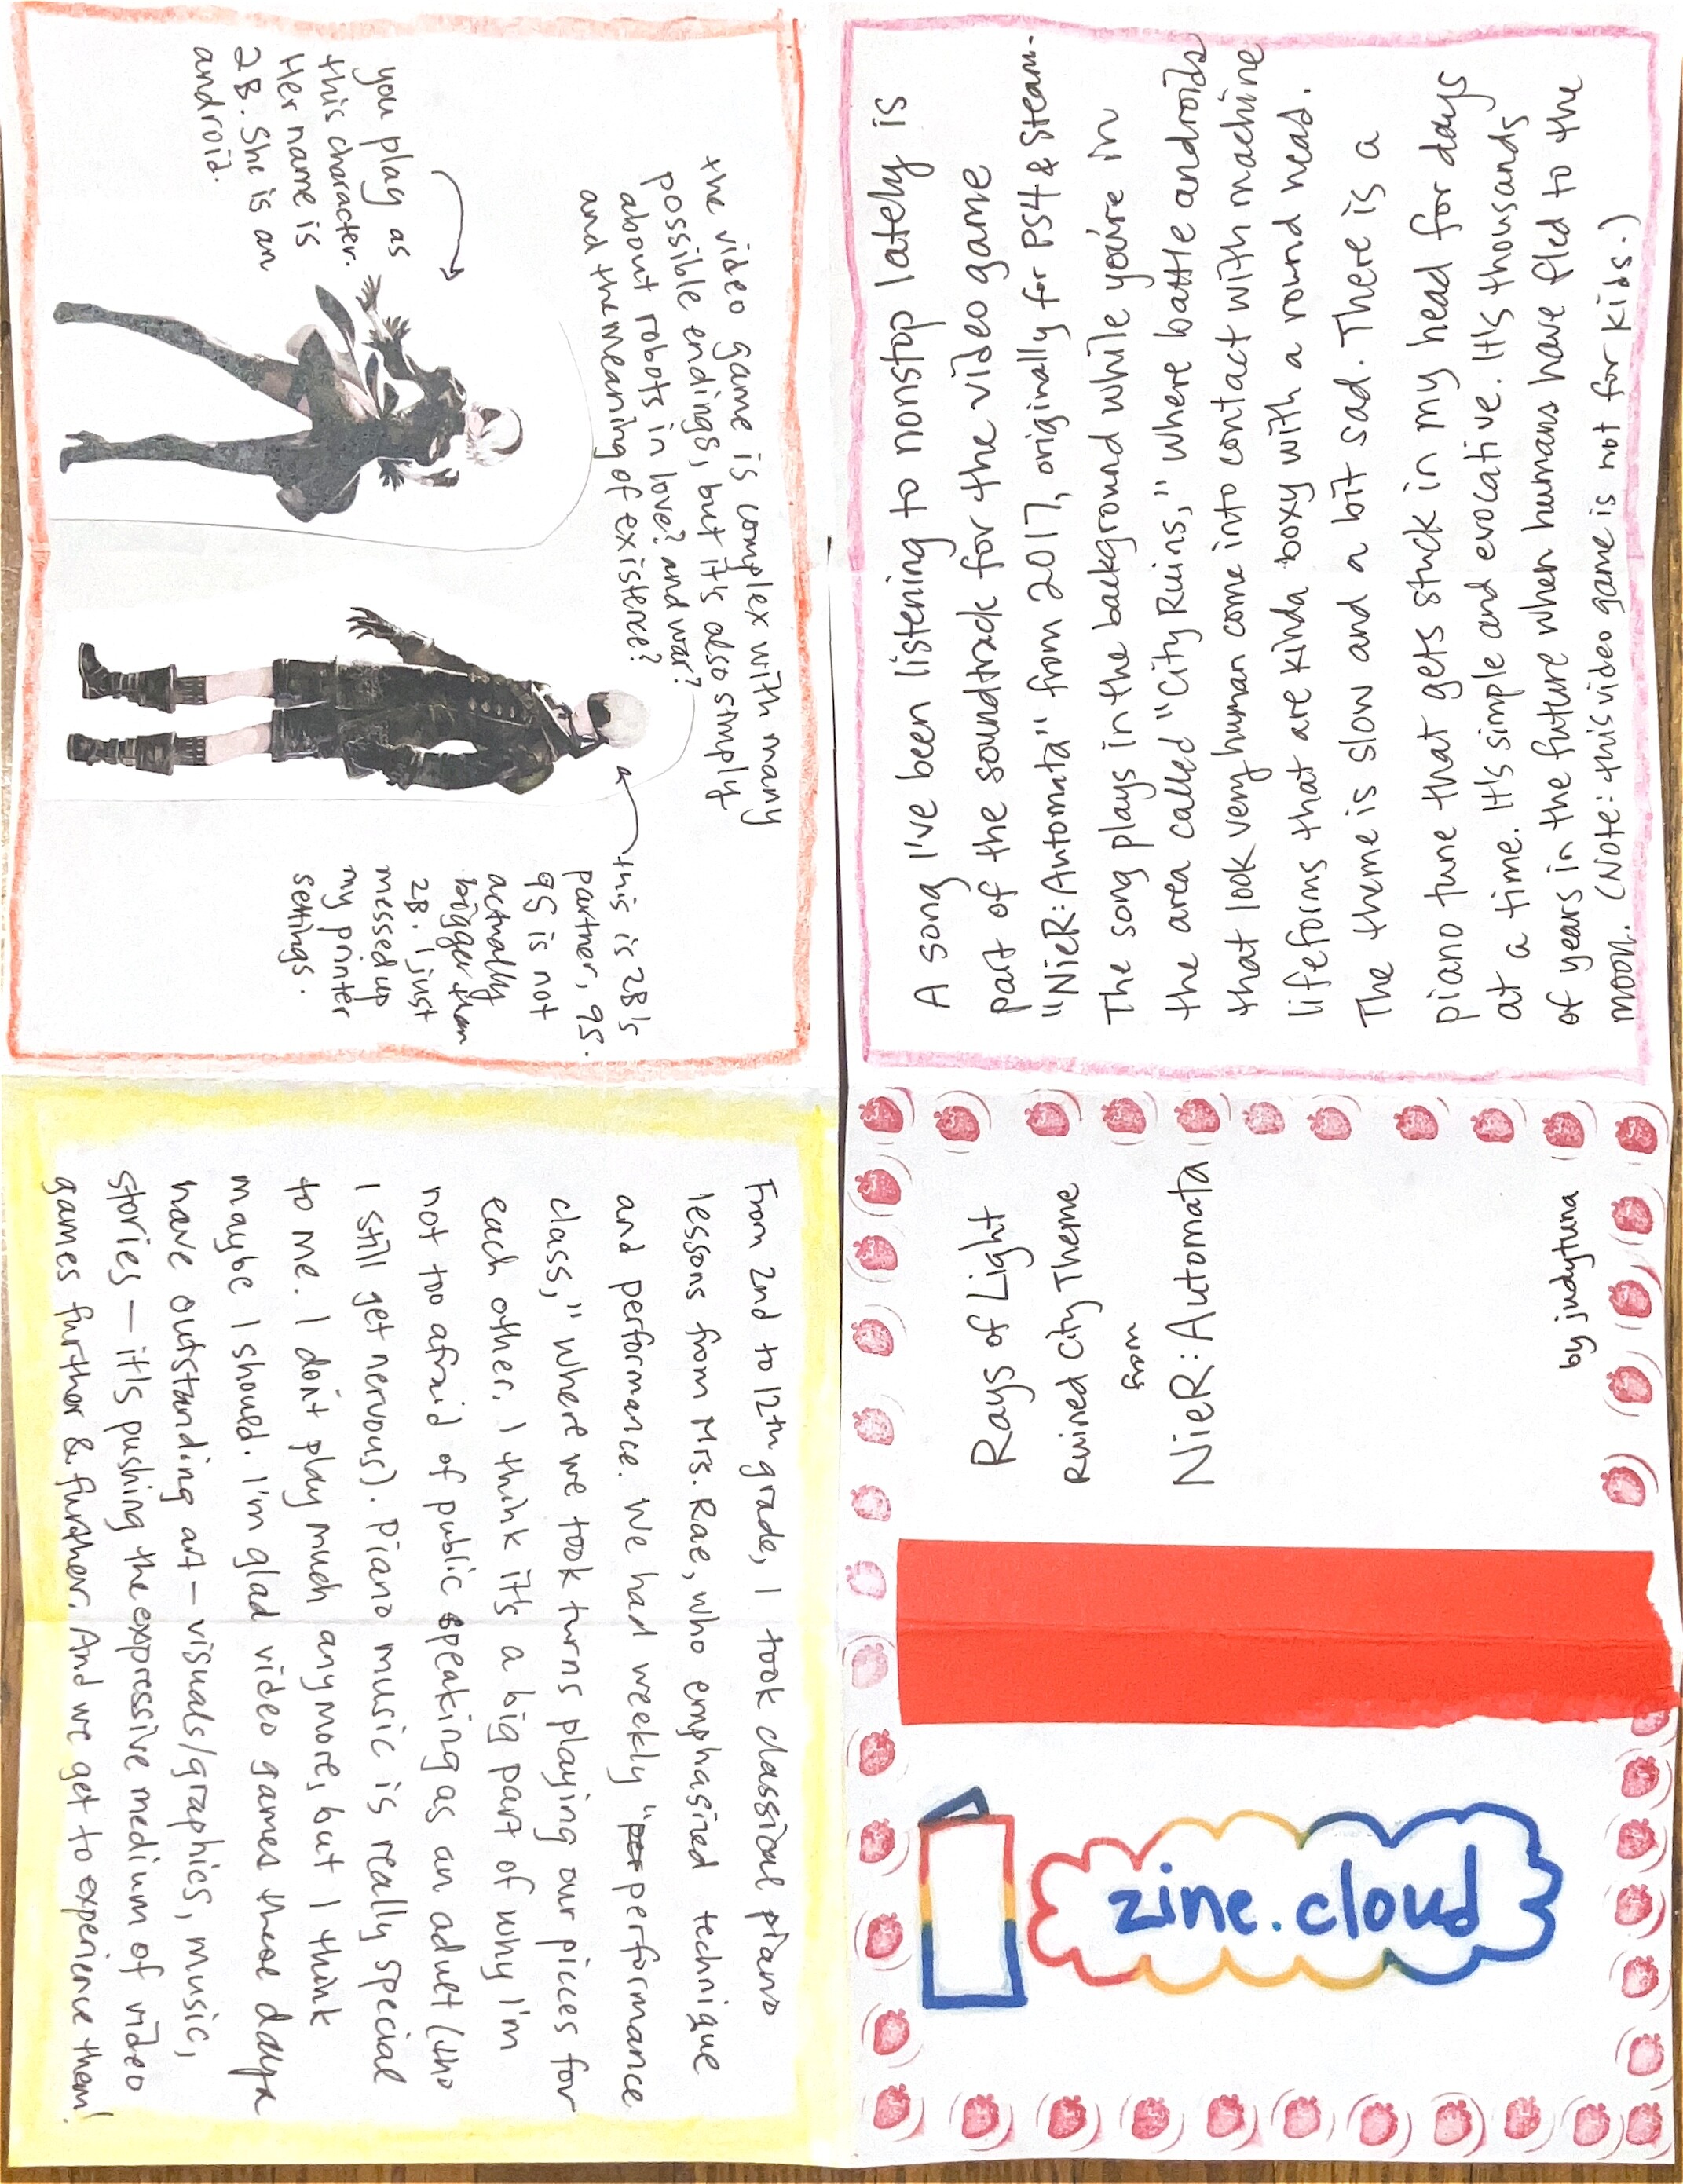 Rays of Light
Ruined City Theme
from
NieR: Automata
by judytuna
zine.cloud
A song I've been listening to nonstop lately is
part of the soundtrack for the video game
"NieR: Automata" from 2017, originally for PS4 & Steam.
The song plays in the background while you're in
the area called "City Ruins," where battle androids
that look very human come into contact with machine
lifeforms that are kinda boxy with a round head.
The theme is slow and a bit sad. There is a
piano tune that gets stuck in my head for days
at a time. It's simple and evocative. It's thousands
of years in the future when humans have fled to the
moon. (Note: this video game is not for kids.)
the video game is complex with many
possible endings, but it's also simply
about robots in love? and war?
and the meaning of existence?
you play as
this character.
Her name is
2B. She is an
android.
this is 2B's
partner, 9S.
9S is not
actually
bigger than
2B. I just
messed up
my printer
settings.
From 2nd to 12th grade, I took classical piano
lessons from Mrs. Rae, who emphasized technique
and performance. We had weekly "per performance
class," where we took turns playing our pieces for
each other. I think it's a big part of why I'm
not too afraid of public speaking as an aduet (tho
I still get nervous). Piano music is really special
to me. I don't play much anymore, but I think
maybe I should. I'm glad video games these days
have outstanding art – visuals/graphics, music,
stories – it's pushing the expressive medium of video
games further & further. And we get to experience them!